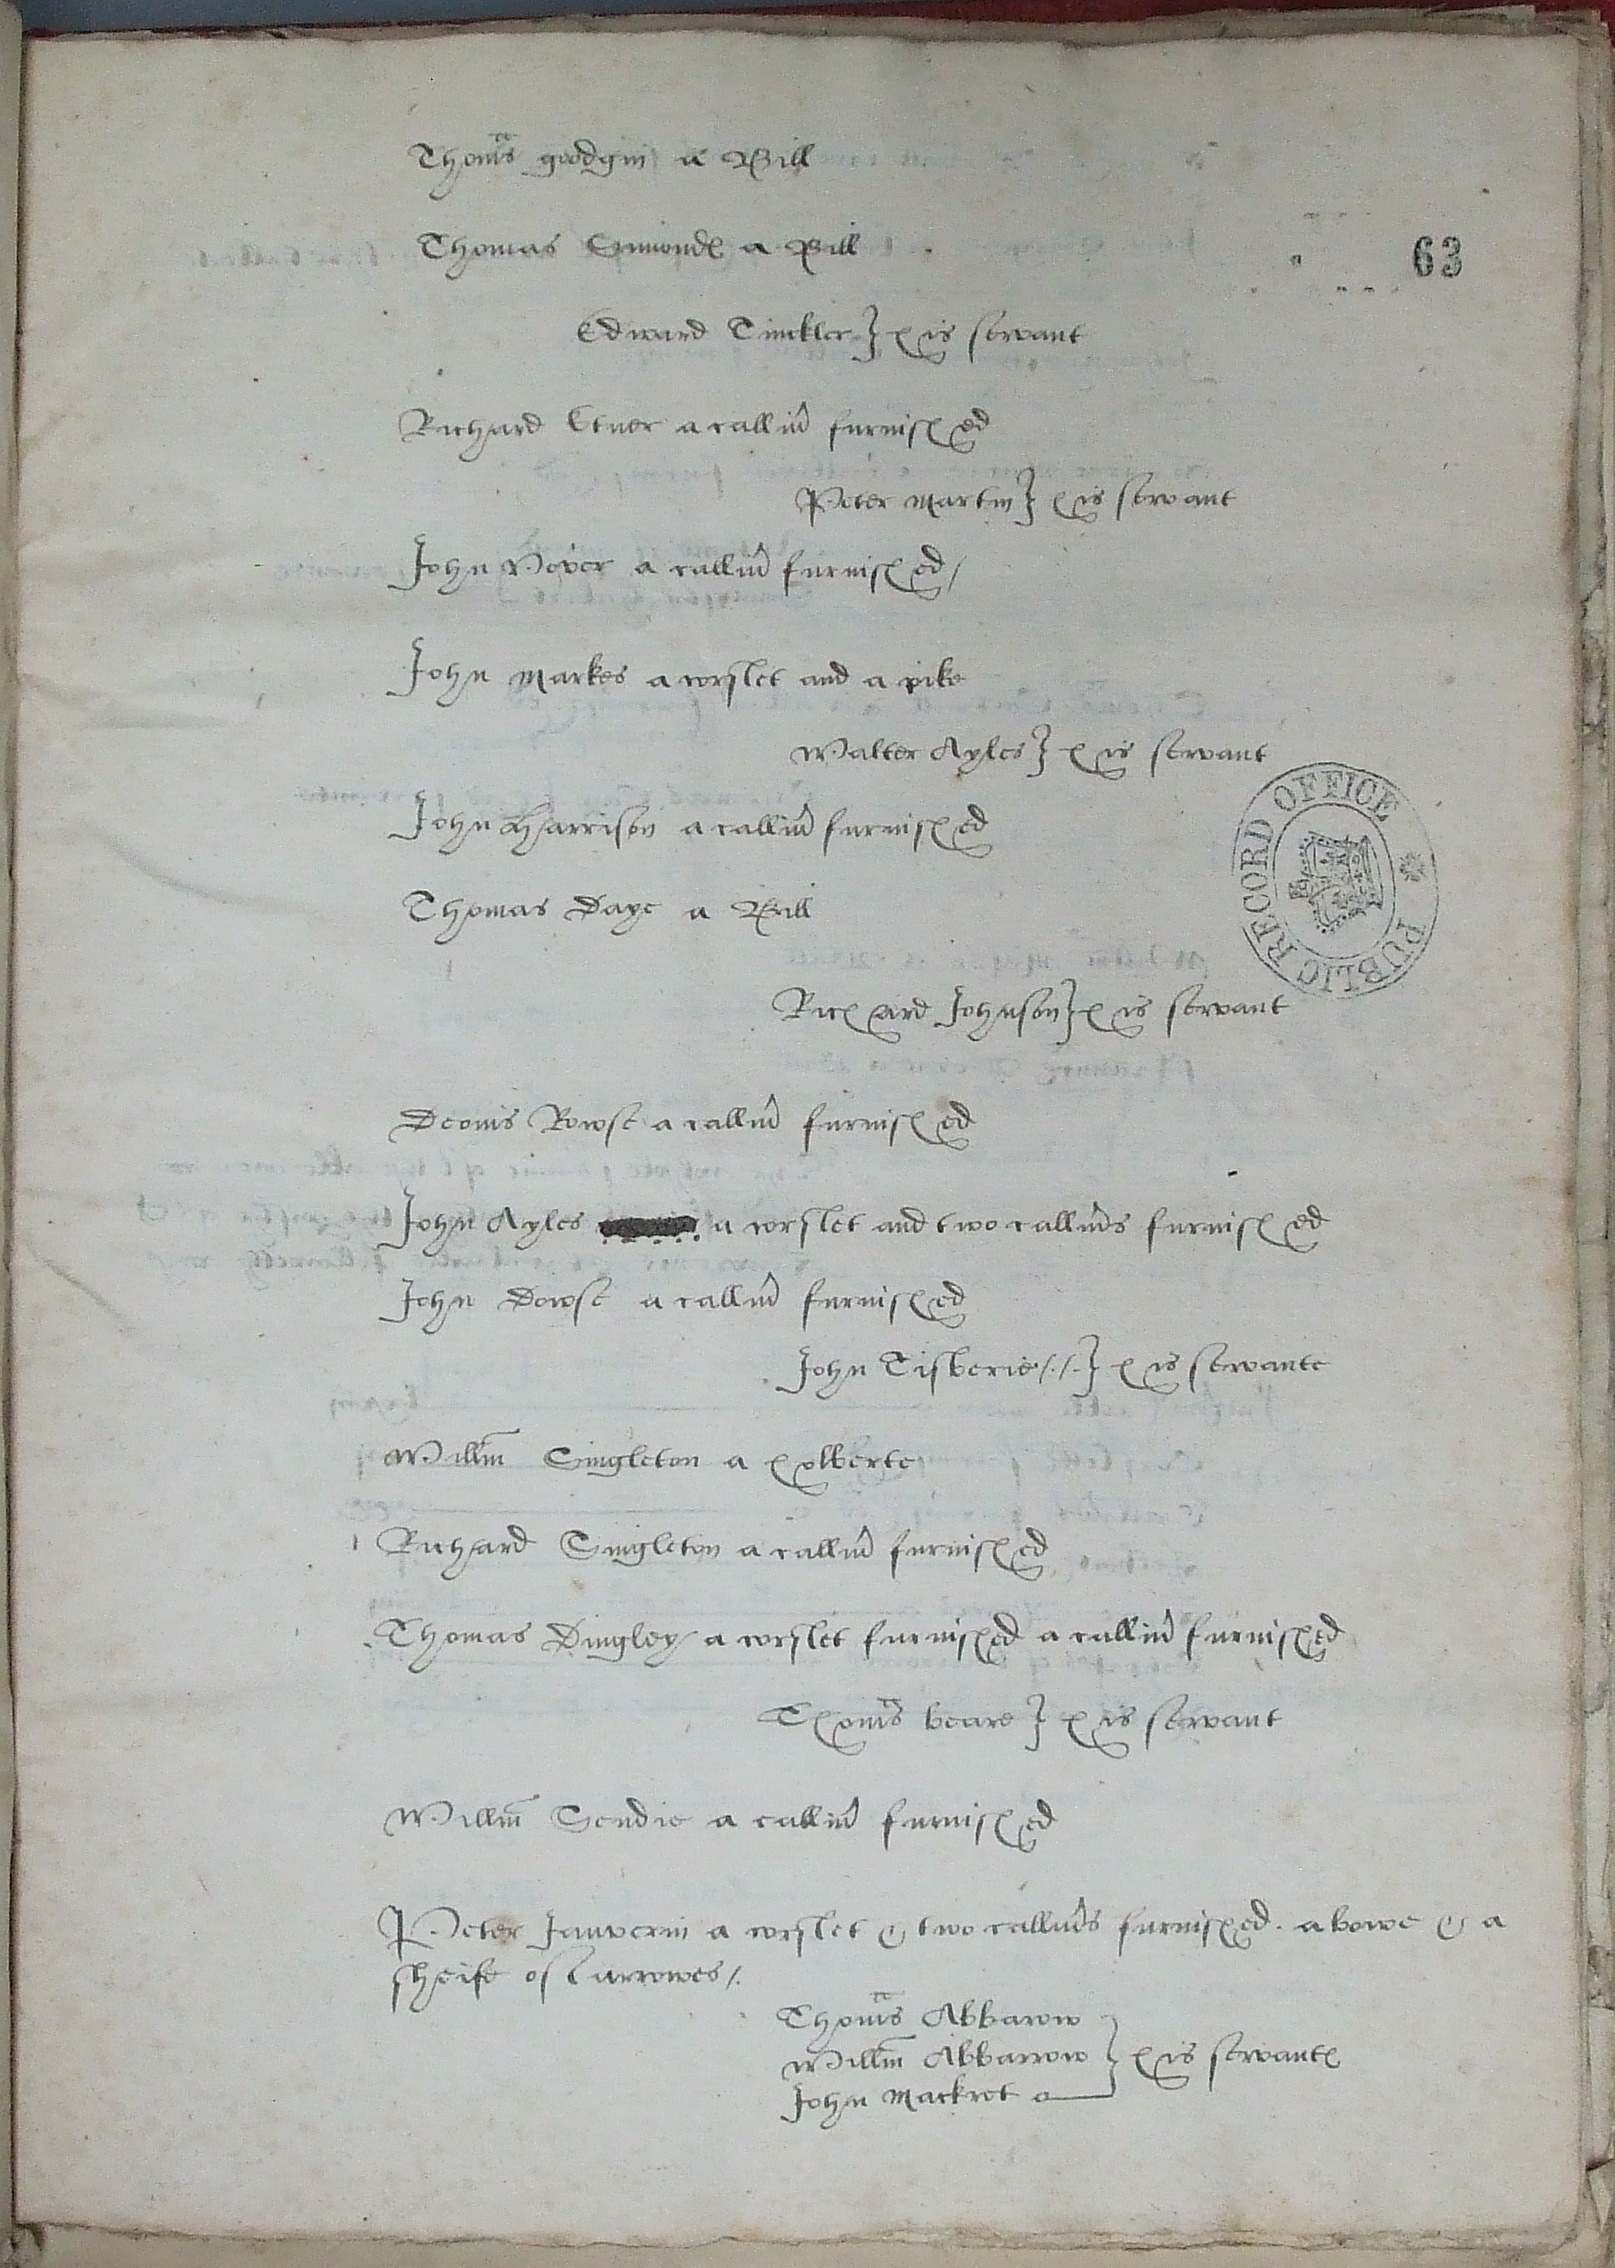 Thomas goodgin a Bill
Thomas Simondes a Bill
63
Edward Tinckler } his servant
Richard Etuer a callivr furnished
Peter Martin } his servant
John Dover a callivr furnished/
John Markes a corslet and a pike
Walter Ayles } his servant
John Harrison a callivr furnished
Thomas Daye a Bill
Richard Johnson } his servant
PUBLIC RECORD OFFICE
Deonis Rowse a callivr furnished
John Ayles a corslet and two callivrs furnished
John Dowse a callivr furnished
John Tisberie/./. } his servante
Willm Singleton a holberte
Richard Singleton a callivr furnished
Thomas Dingley a corslet furnished a callivr furnished
Thomas beare } his servant
Willm Sendie a callivr furnished
Peter Janverin a corslet & two callivrs furnished. a bowe & a
sheife of arrowes/.
Thomas Abbarow
Willm Abbarrow } his servantes
John Mackret